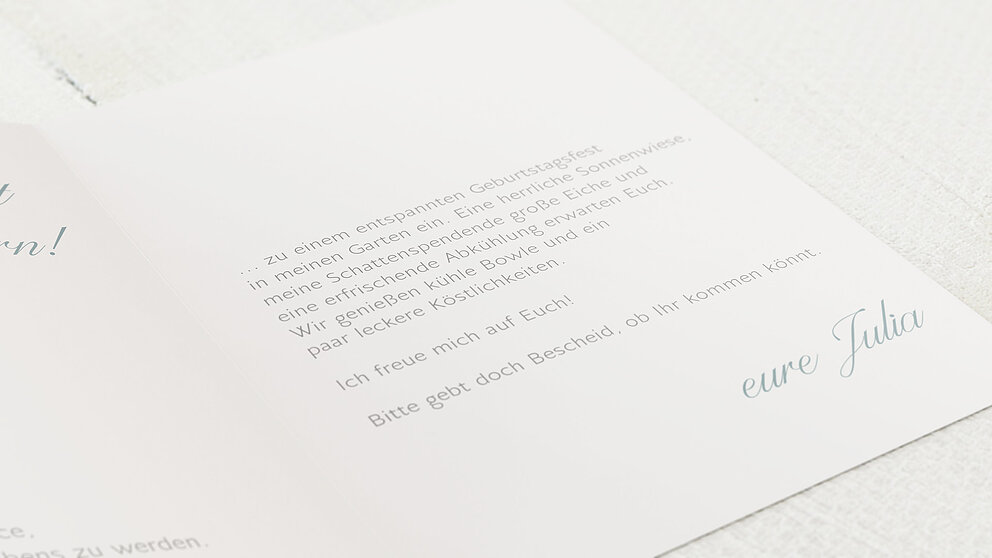 rn!
zu werden.
... zu einem entspannten Geburtstagsfest
in meinen Garten ein. Eine herrliche Sonnenwiese,
meine Schattenspendende große Eiche und
eine erfrischende Abkühlung erwarten Euch.
Wir genießen kühle Bowle und ein
paar leckere Köstlichkeiten.
Ich freue mich auf Euch!
Bitte gebt doch Bescheid, ob Ihr kommen könnt.
eure Julia